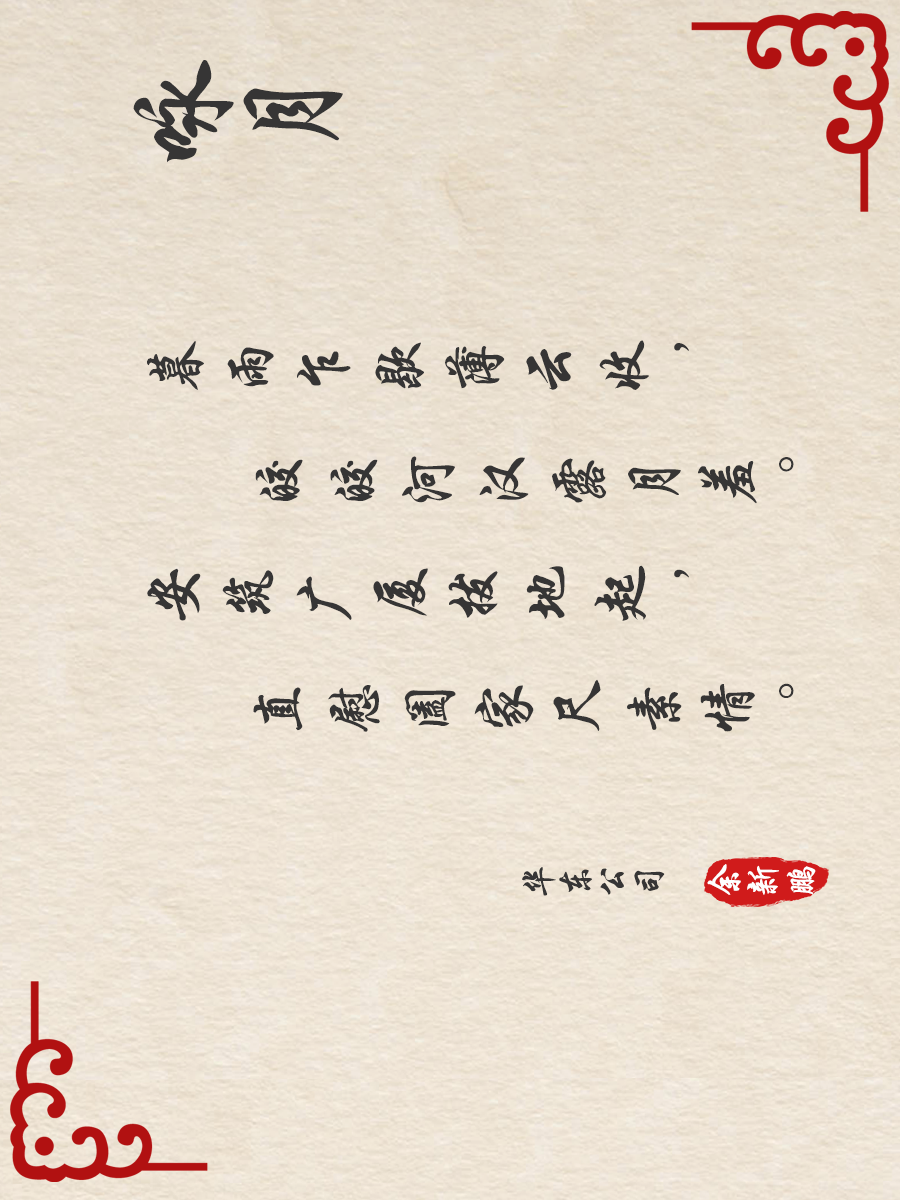 咏月
暮雨乍歇薄云收，
皎皎河汉露月羞。
安筑广厦拔地起，
直慰阖家尺素情。
华东公司 余新鹏